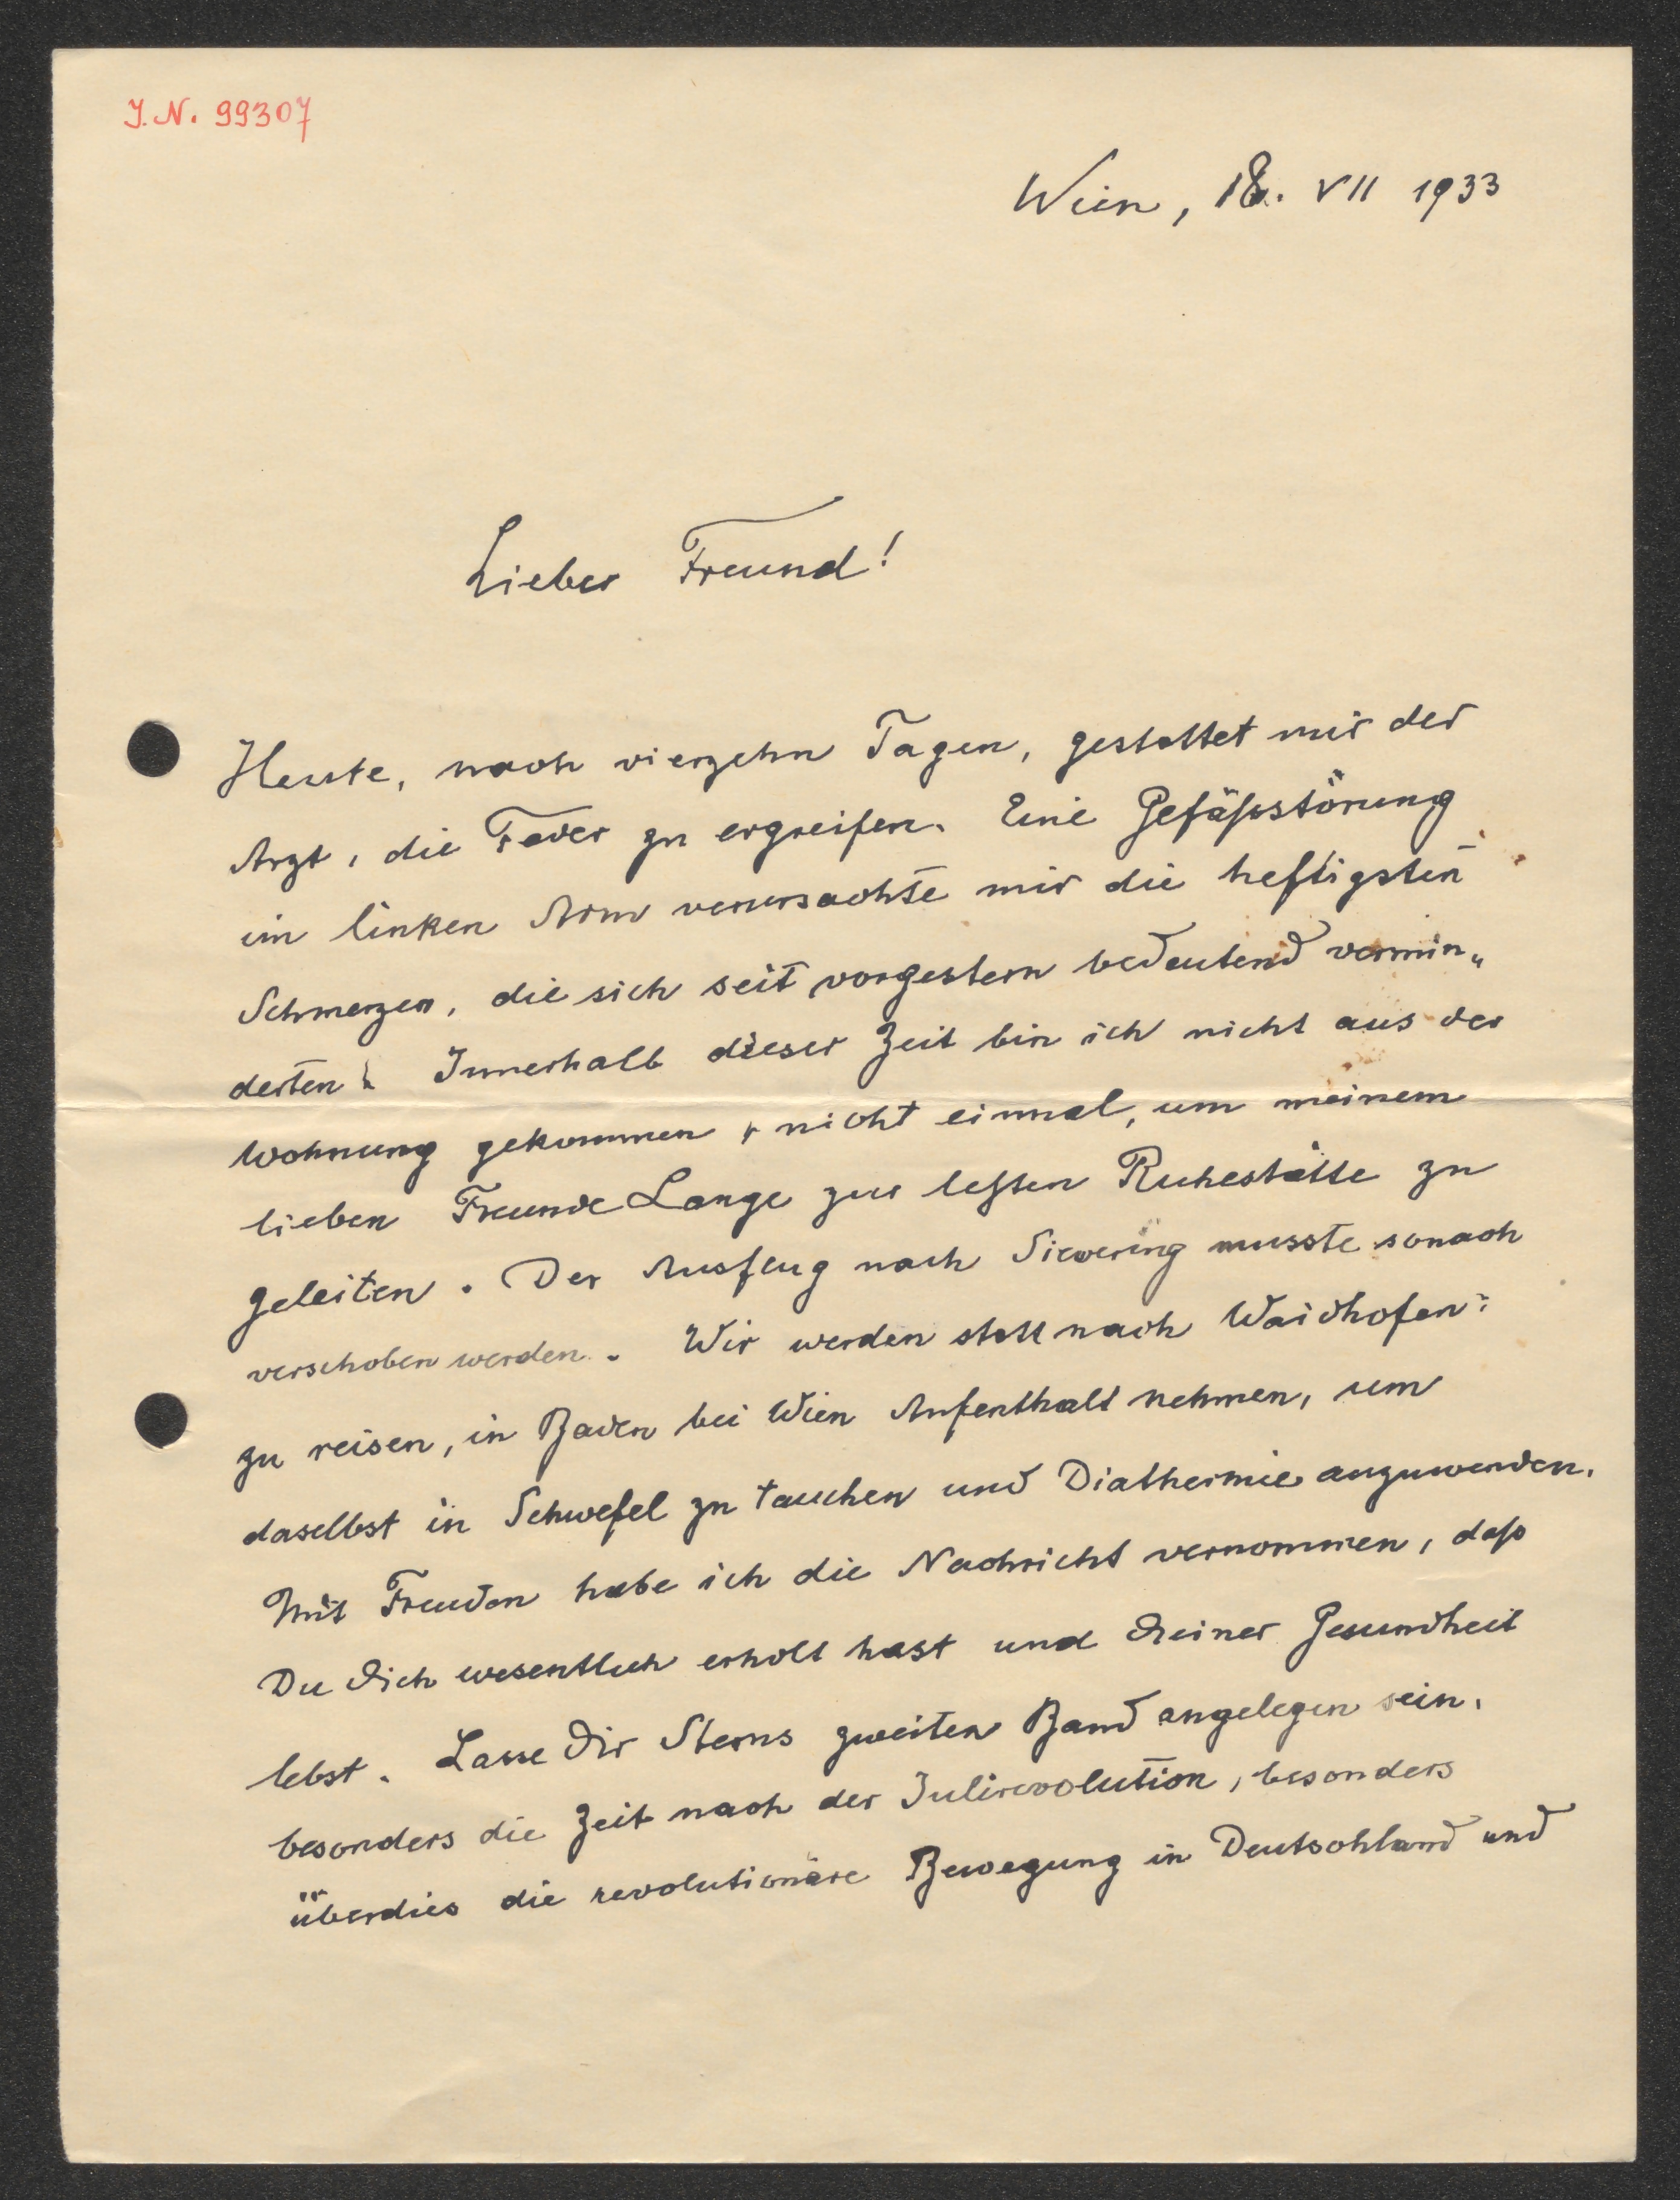 J.N. 99307
Wien, 18. VII 1933
Lieber Freund!
Heute, nach vierzehn Tagen, gestattet mir der
Arzt, die Feder zu ergreifen. Eine Gefäßstörung
im linken Arm verursachte mir die heftigsten
Schmerzen, die sich seit vorgestern bedeutend vermin„
derten. Innerhalb dieser Zeit bin ich nicht aus der
Wohnung gekommen, nicht einmal, um meinem
lieben Freunde Lange zur letzten Ruhestätte zu
geleiten. Der Ausflug nach Sievering musste sonach
verschoben werden. Wir werden statt nach Waidhofen
zu reisen, in Baden bei Wien Aufenthalt nehmen, um
daselbst in Schwefel zu tauchen und Diathermie anzuwenden.
Mit Freuden habe ich die Nachricht vernommen, daß
Du Dich wesentlich erholt hast und Deiner Gesundheit
lebst. Lasse Dir Sterns zweiten Band angelegen sein,
besonders die Zeit nach der Julirevolution, besonders
überdies die revolutionäre Bewegung in Deutschland und